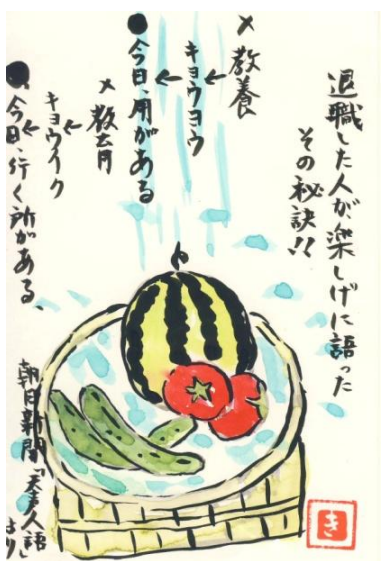 退職した人が、楽しげに語った
その秘訣!!
× 教養
キョウヨウ ←
● 今日、用がある ←
× 教育
キョウイク
● 今日、行く所がある、 ←
朝日新聞「天声人語」
より
き